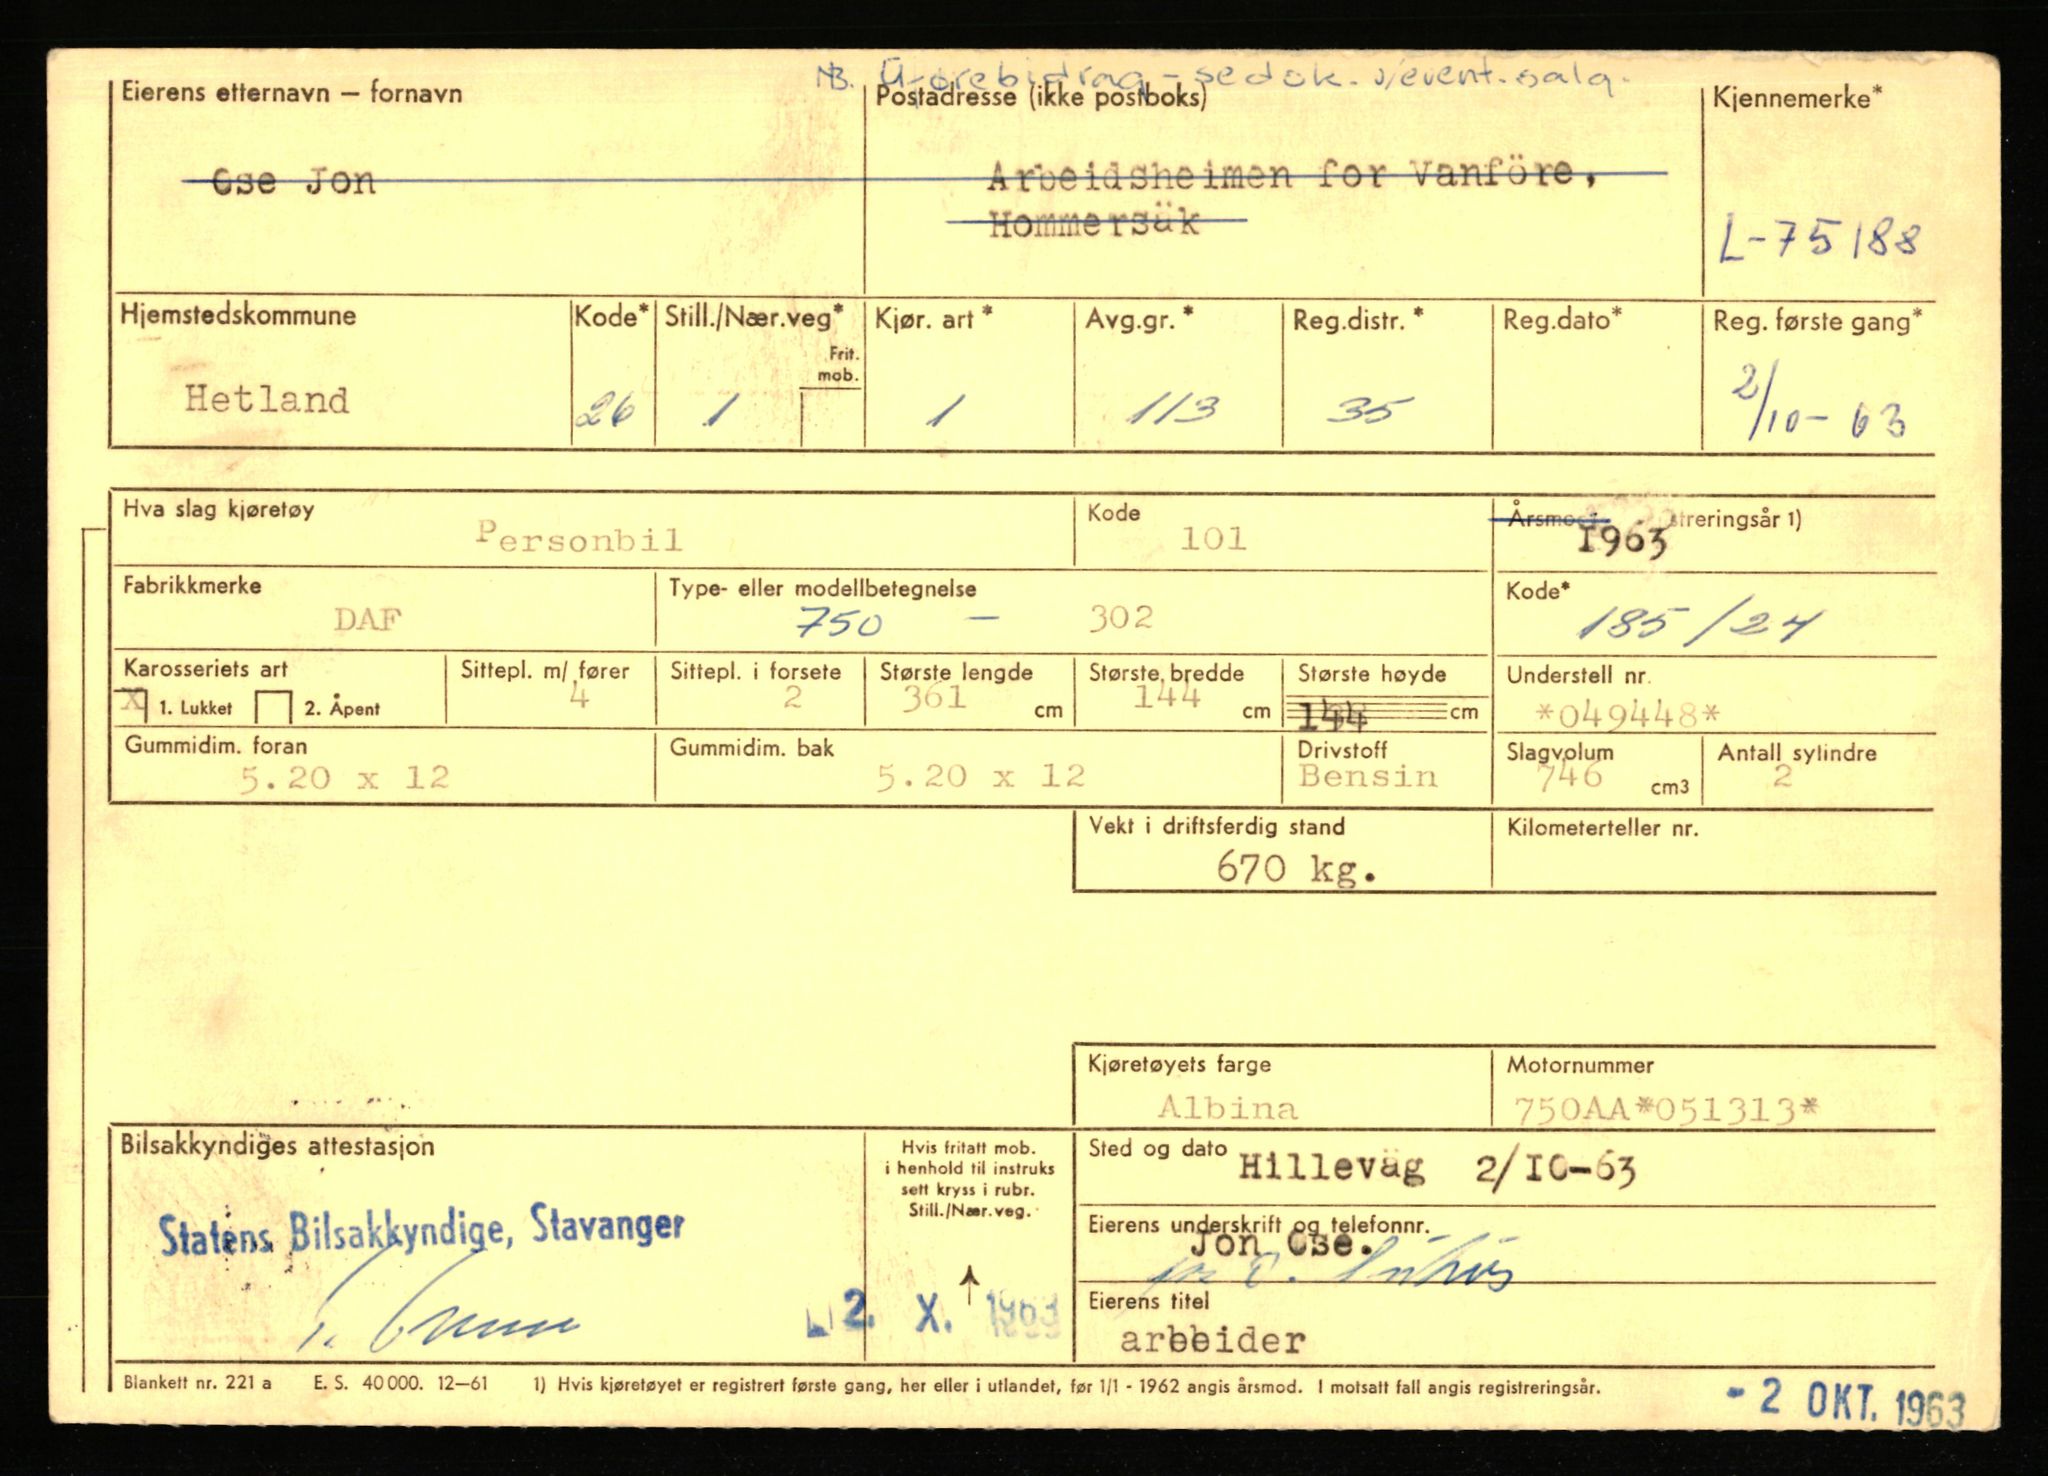 NB. Uførebidrag - se dok. v/event. salg.
Eierens etternavn — fornavn
Postadresse (ikke postboks)
Kjennemerke*
Ose Jon
Arbeidsheimen for Vanföre,
Hommersäk
L-75188
Hjemstedskommune
Kode*
Still./Nær.veg*
Frit. mob.
Kjør. art *
Avg.gr. *
Reg.distr. *
Reg.dato*
Reg. første gang*
Hetland
26
1
1
113
35
2/10-63
Hva slag kjøretøy
Personbil
Kode
101
Årsmod streringsår 1)
1963
Fabrikkmerke
DAF
Type- eller modellbetegnelse
750 - 302
Kode*
185/24
Karosseriets art
X 1. Lukket 2. Åpent
Sittepl. m/ fører
4
Sittepl. i forsete
2
Største lengde
361 cm
Største bredde
144 cm
Største høyde
144 cm
Understell nr.
*049448*
Gummidim. foran
5.20 x 12
Gummidim. bak
5.20 x 12
Drivstoff
Bensin
Slagvolum
746 cm3
Antall sylindre
2
Vekt i driftsferdig stand
670 kg.
Kilometerteller nr.
Kjøretøyets farge
Albina
Motornummer
750AA*051313*
Bilsakkyndiges attestasjon
Statens Bilsakkyndige, Stavanger
2. X. 1963
Hvis fritatt mob.
i henhold til instruks
sett kryss i rubr.
Still./Nær.veg.
Sted og dato
Hilleväg 2/IO-63
Eierens underskrift og telefonnr.
Jon Ose.
Eierens titel
arbeider
Blankett nr. 221 a E. S. 40 000. 12—61 1) Hvis kjøretøyet er registrert første gang, her eller i utlandet, før 1/1 - 1962 angis årsmod. I motsatt fall angis registreringsår.
- 2 OKT. 1963